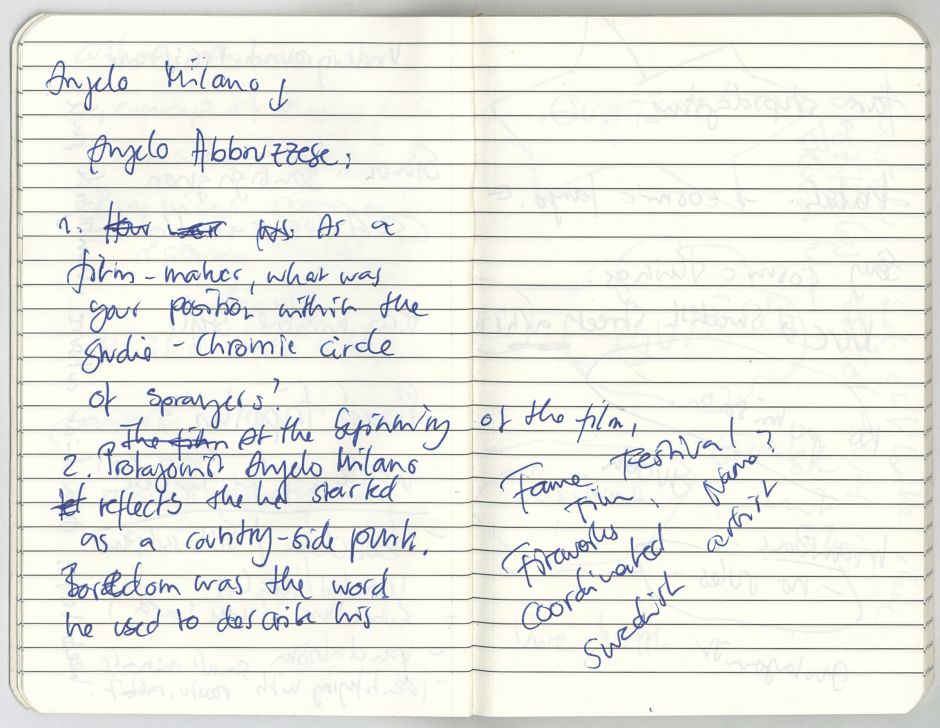 Angelo Milano ↓
Angelo Abbruzzese:
1. As a
film-maker, what was
your position within the
Studio-Chromie circle
of sprayers?
At the beginning of the film,
2. Protagonist Angelo Milano
reflects the he started
as a country-side punk.
Boredom was the word
he used to describe his
Fame Festival
Film,
Fireworks Name?
Coordinated artist
Swedish